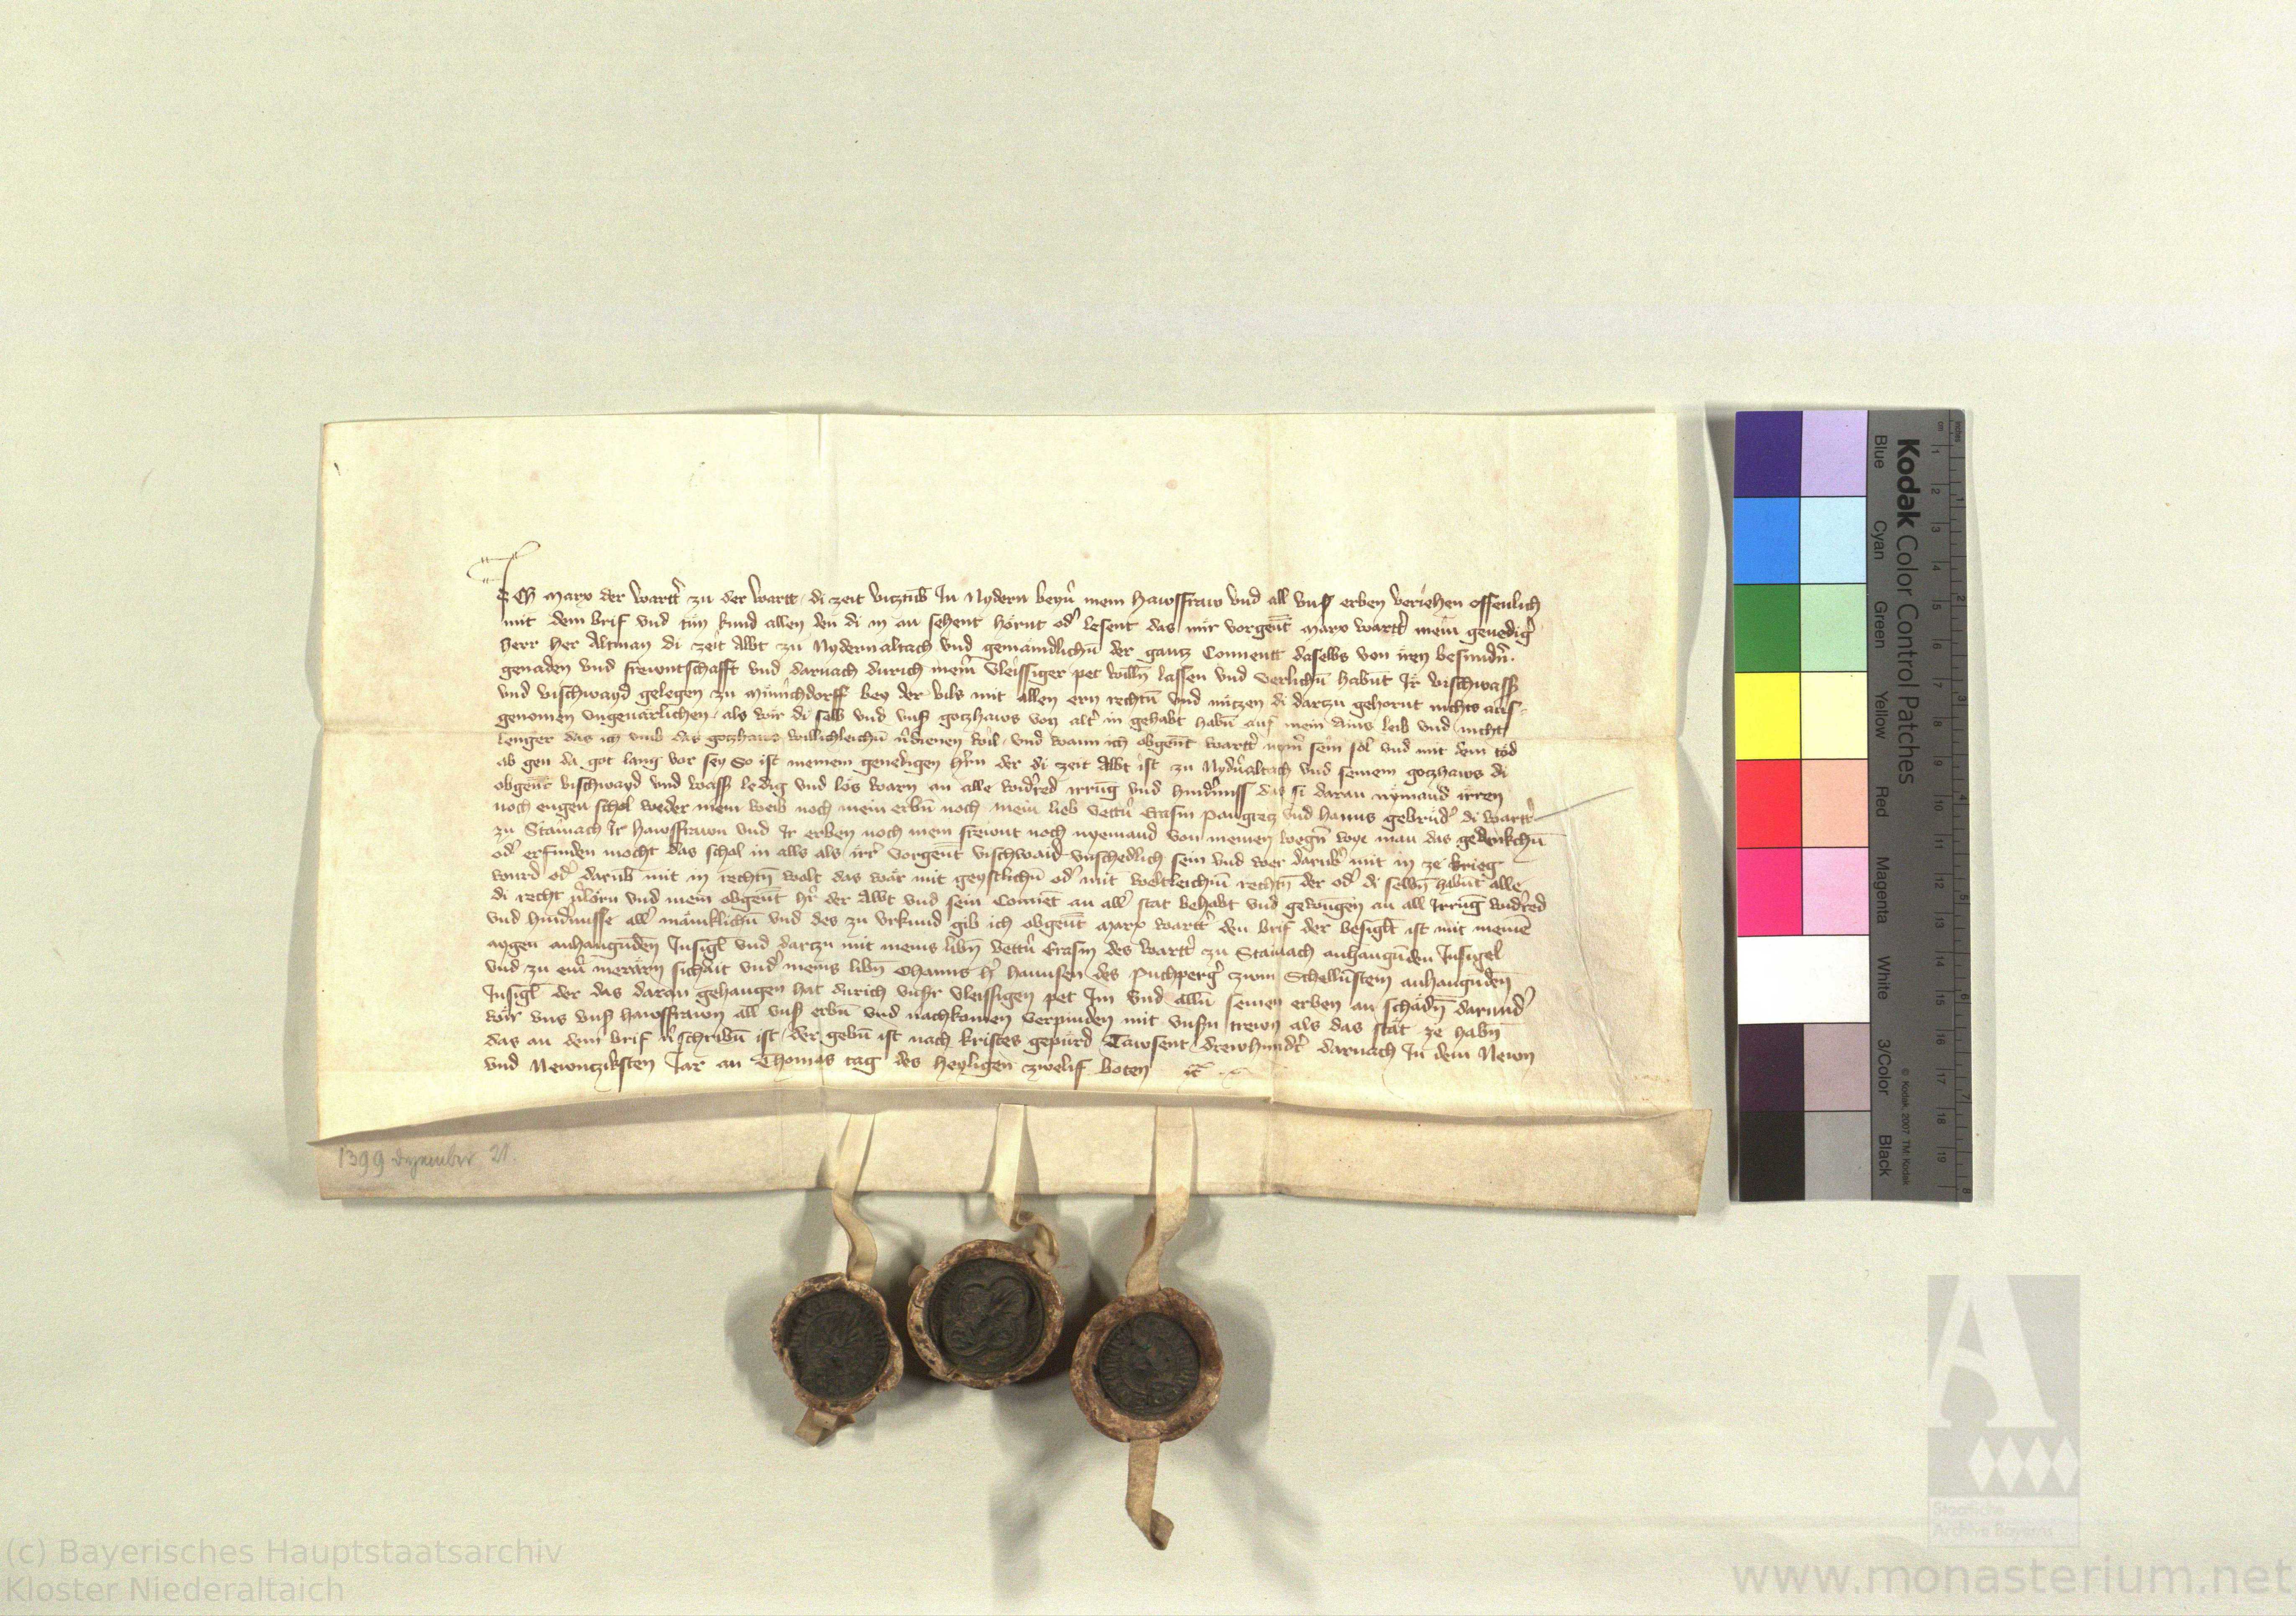 Ich Marx der Wartt̄ zu der Wartt di zeit vicztūb In Nydern beyn̄ mein hawsfraw vnd all vnsß erben veriehen offenlich
mit dem brif vnd tun kund allen den di in an sehent hörnt od̄ lesent das mir vorgēnt Marx Wartt̄ mein genediḡ
herr her Altman di zeit Abbt zu Nydernaltach vnd gemaindlichn̄ der gancz Conuentt daselbs von iren besundn̄
genaden vnd frewntschafft vnd darnach durich mein̄ vleissiger pet willn̄ lassen vnd verlichn̄ habnt Ir vischwasß
vnd vischwayd gelegen zu Münichdorff bey der vils mit allen ern rechtn̄ vnd nüczen di darczu gehornt nichts aus
genomen vngeuärlichen als wir di selb vnd vnsß goczhaws von alt̄ in gehabt habn̄ auf mein ains leib vnd nicht
lenger das ich vmb das goczhaws willichleichn̄ v̄dienen wil vnd wann ich obgēnt Wartt̄ nym̄ sein sol vnd mit dem tod
ab gen da got lang vor sey So ist meinem genedigen h̄rn der di zeit Abbt ist zu Nyd̄naltach vnd seinem goczhaws di
obgēnt vischwayd vnd wasß ledig vnd los warn an alle wid̄red irrūg vnd hind̄nuss das si daran nyemand irren
noch engen schol weder mein weib noch mein erbn̄ noch mein lieb vett̄n Erasm pangrecz vnd hanns gebrüd̄ di Wartt̄
zu Stainach Ir hawsfrawn vnd Ir erben noch mein frewnt noch nyemand von meinen wegn̄ wye man das gedenkchn̄
od̄ erfinden mocht das schol in alls als irr vorgēnt vischwaid vnschedlich sein vnd wer darub̄ mit in ze krieg
wurd od̄ darub̄ mit in rechtn̄ wolt das wär mit geystlichn̄ od̄ mit weltleichn̄ rechtn̄ der od̄ di selbn̄ habnt alle
di recht v̄lorn vnd mein obgēnt h̄r der Abbt vnd sein Conuēt an all̄ stat behabt vnd gewungen an all Irrūg wid̄red
vnd hind̄nusse all̄ mäniklichn̄ vnd des zu vrkund gib ich obgēnt Marx Wartt̄ den brif der besiglt ist mit meinē
aygen anhangundēn Insigl̄ vnd darczu mit meins libn̄ vett̄n Erasm des Wartt̄ zu Stainach anhangundēn Insigel
vnd zu ein̄ merärn sich̄ait vnd̄ meins libn̄ Ohaims h̄r hannsen des puchperḡ zwm Schellnstein anhangundēn
Insigl̄ der das daran gehangen hat durich vnsr vleissigen pet Im vnd alln̄ seinen erben an schädn̄ darund̄
wir vns vnsß hawsfrawn all vnsß erbn̄ vnd nachkomen verpinden mit vnsn̄ trewn als das stät ze habn̄
das an dem brif v̄schribn̄ ist der gebn̄ ist nach kristes gepurd Tawsent drewhundt̄ darnach In dem Newn
vnd Newnczikisten Jar an Thomas tag des heyligen zwelif boten ꝛc
1399 Dezember 21.
Kodak Color Control Patches
Blue Cyan Green Yellow Red Magenta White 3/Color Black
© Kodak, 2007 TM: Kodak
Staatliche
Archive Bayerns
(c) Bayerisches Hauptstaatsarchiv
Kloster Niederaltaich
www.monasterium.net